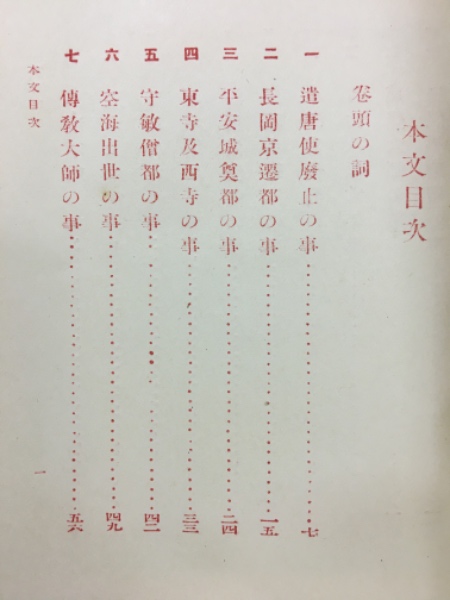 本文目次
卷頭の詞
一 遣唐使廢止の事 七
二 長岡京遷都の事 一五
三 平安城奠都の事 二四
四 東寺及西寺の事 三三
五 守敏僧都の事 四二
六 空海出世の事 四九
七 傳敎大師の事 五六
本文目次
一